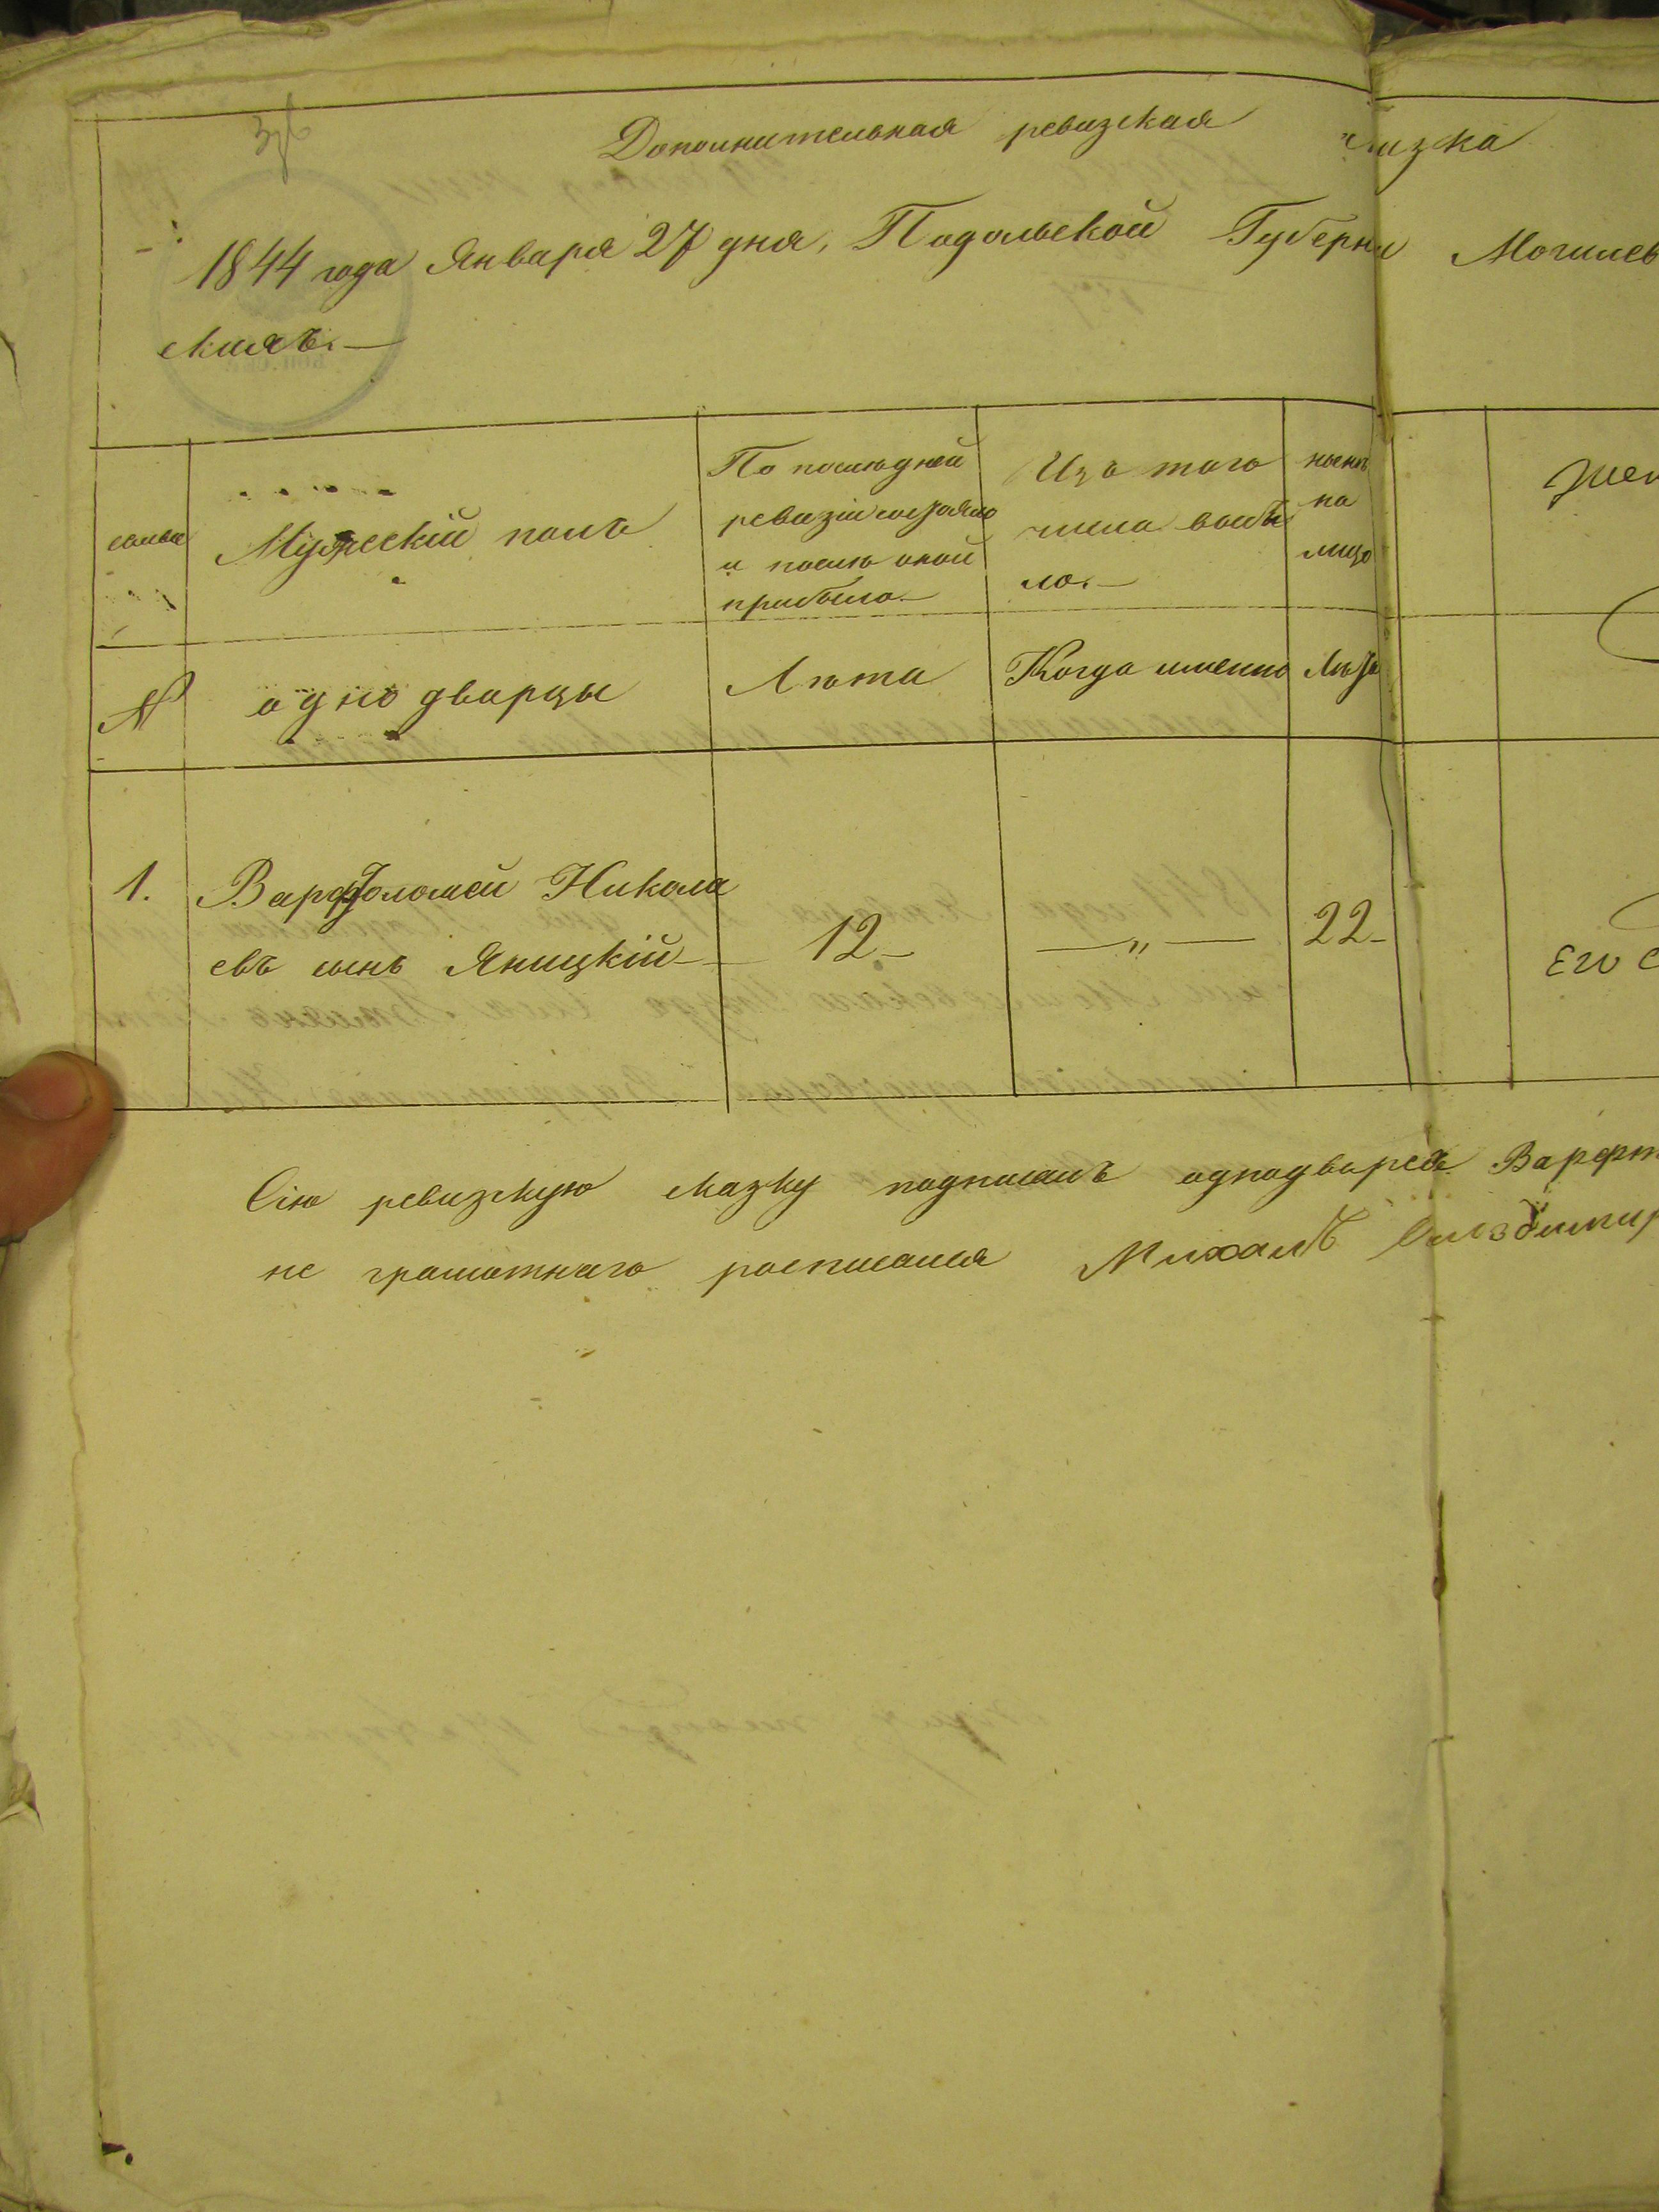 Дополнительная ревизская сказка
1844 года Января 27 дня, Подольской Губерни Могилев
скихъ.—
семьи
Мужескій полъ
По последней
ревизіи состояло
и после оной
прибыло
Изъ того
числа выбы
ло.—
ныне
на
лицо
жен
№
однодворцы
Лѣта
Когда именно
Лѣта
1.
Варфоломей Никола
евъ сынъ Яницкій
12
— „ —
22
Его
Сію ревизкую сказку подписалъ однодворецъ Варфт
не грамотнаго росписался Михалъ